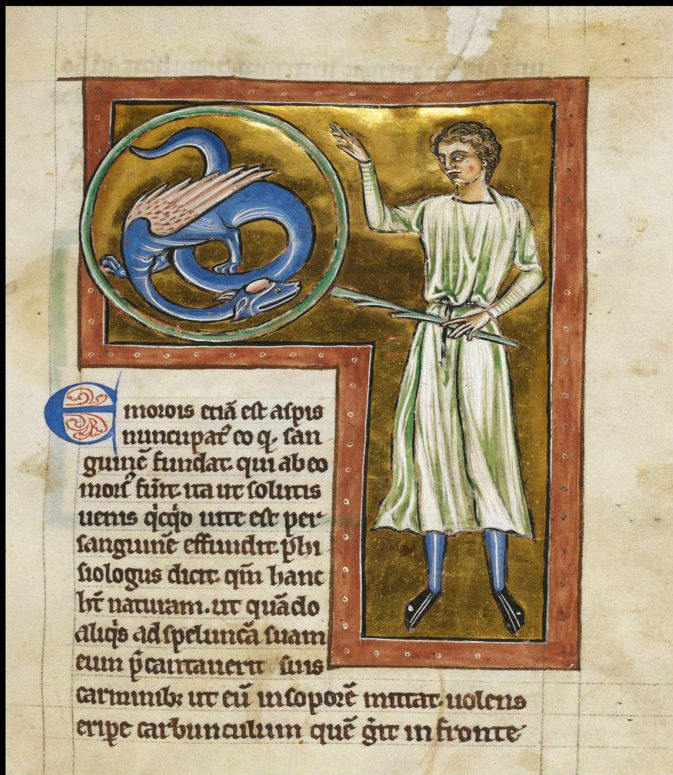 Emorois etiã est aspis
nuncupat᷑ eo q̧ san
guinẽ fundat. qui ab eo
mors᷒ fũit. ita ut solutis
uenis q̇cq̇d uite est per
sanguinẽ effundit. phi
siologus dicit. qm̃ hanc
ht̃ naturam. ut quãdo
aliq̇s ad speluncã suam
eum p̃cantauerit suis
carminib; ut eũ in soporẽ mittat. uolens
eripe carbunculum quẽ g̃it in fronte